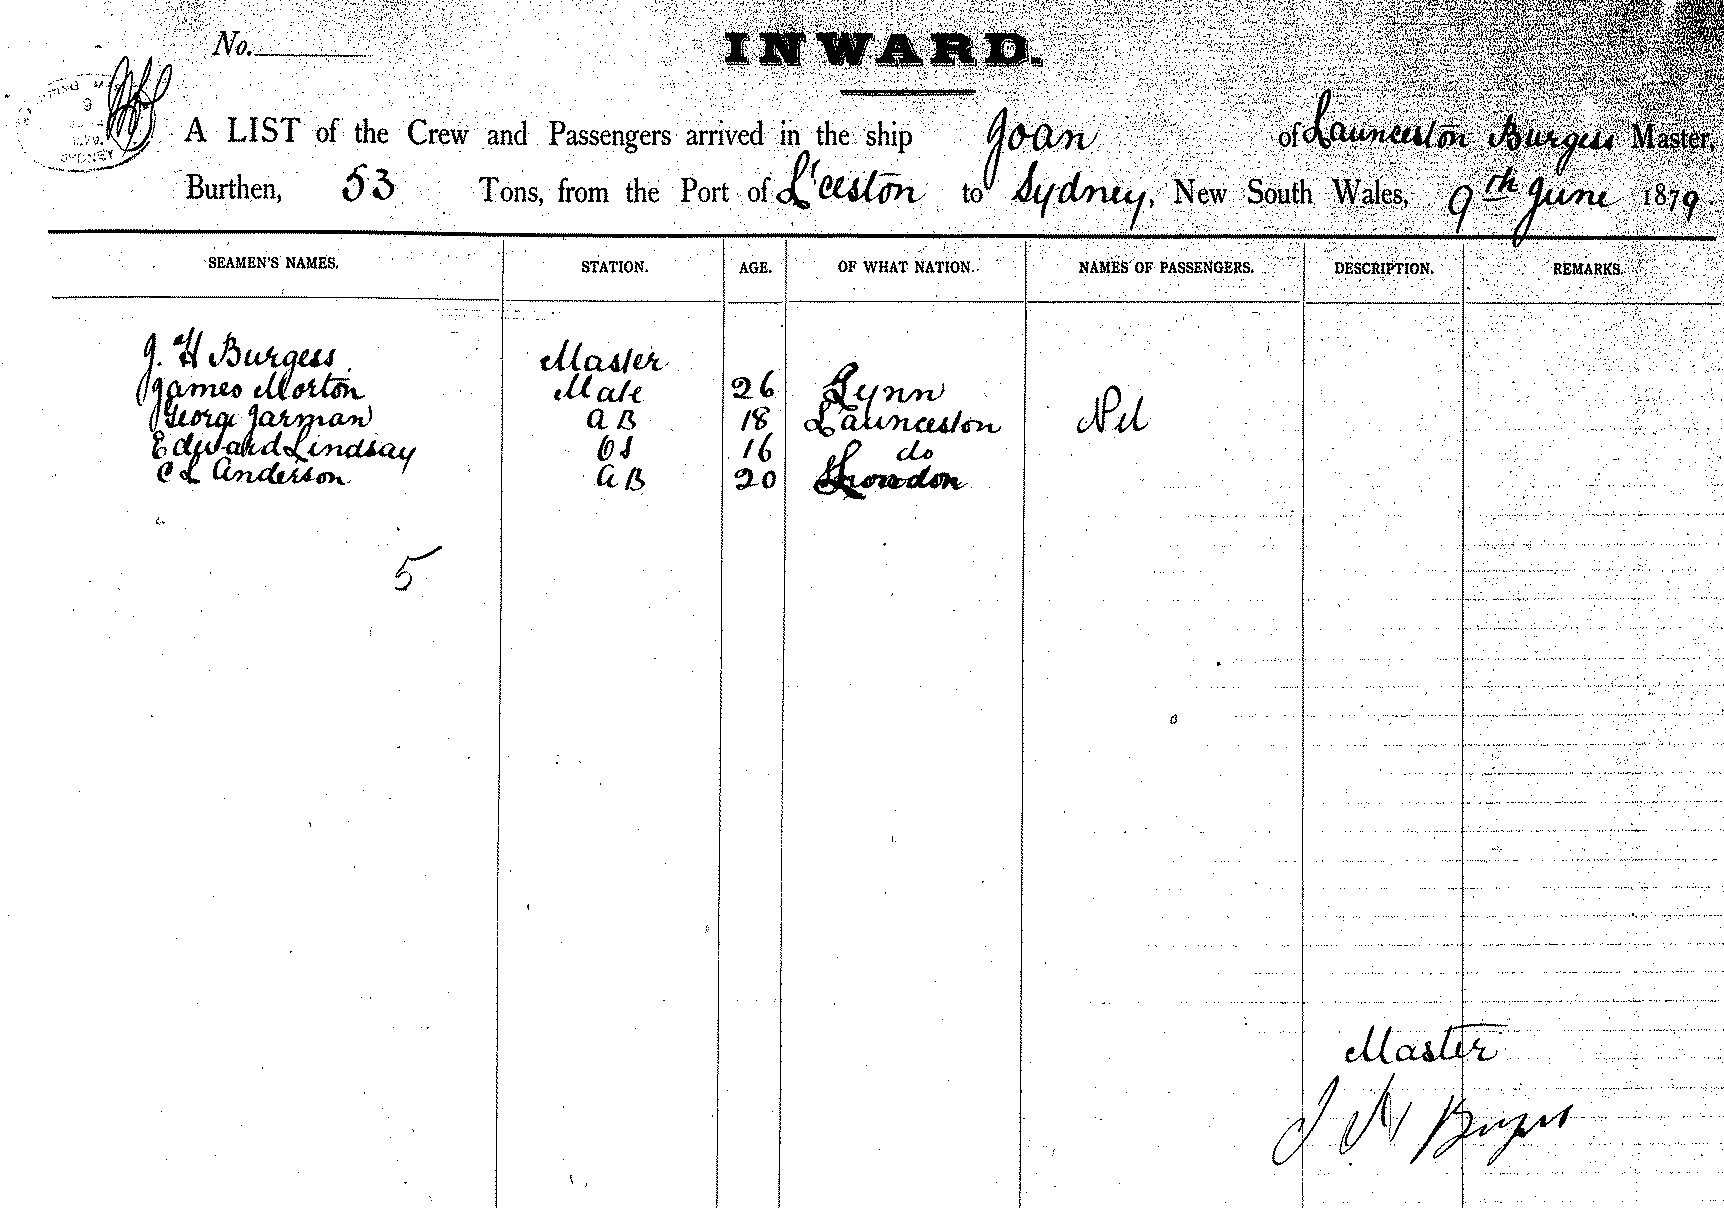 No.
INWARD.
SYDNEY
A LIST of the Crew and Passengers arrived in the ship Joan of Launceston Burgess Master,
Burthen, 53 Tons, from the Port of L'ceston to Sydney, New South Wales, 9th June 1879.
SEAMEN'S NAMES. STATION. AGE. OF WHAT NATION. NAMES OF PASSENGERS. DESCRIPTION. REMARKS.
J. H Burgess Master
James Morton Mate 26 Lynn
George Jarman A B 18 Launceston Nil
Edward Lindsay OS 16 do
C L Anderson A B 20 London
5
Master
J H Burgess